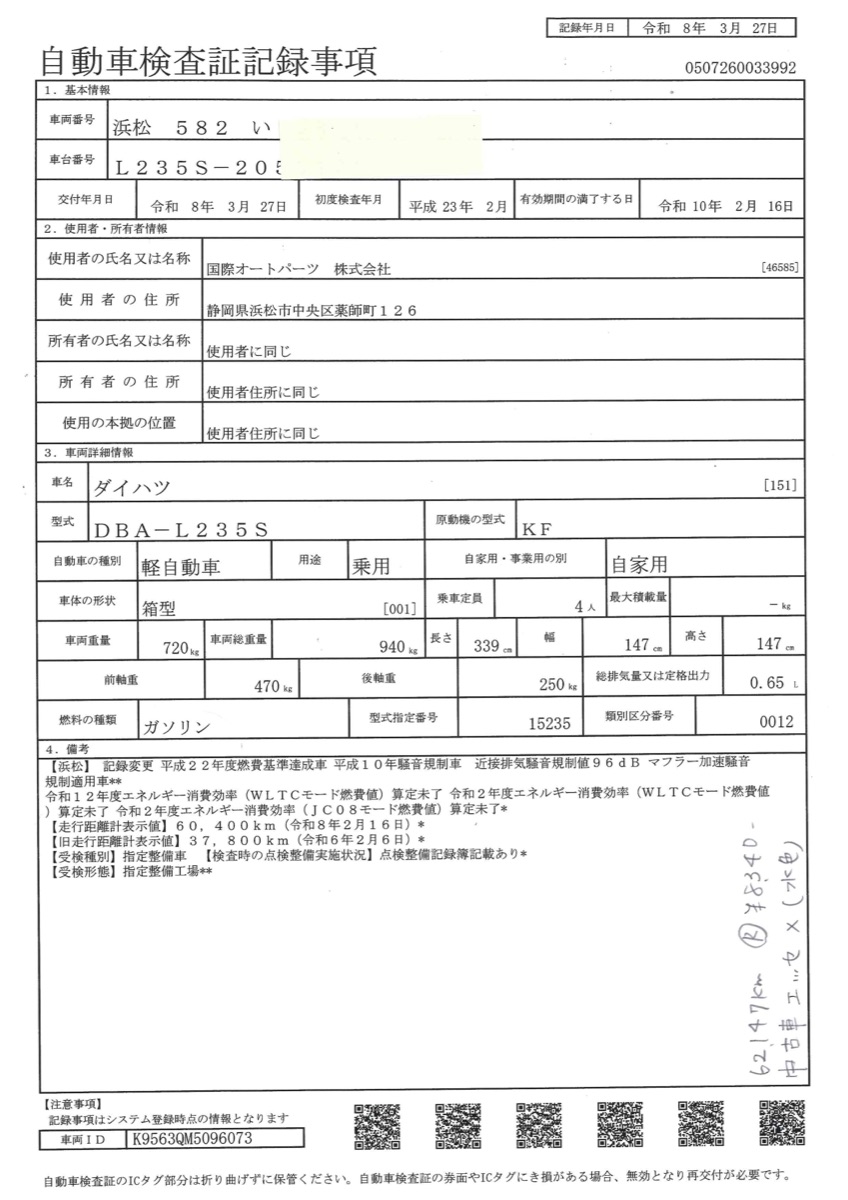 記録年月日 令和 8年 3月 27日
自動車検査証記録事項
0507260033992
1．基本情報
車両番号 浜松 ５８２ い
車台番号 Ｌ２３５Ｓ－２０５
交付年月日 令和 8年 3月 27日 初度検査年月 平成 23年 2月 有効期間の満了する日 令和 10年 2月 16日
2．使用者・所有者情報
使用者の氏名又は名称 国際オートパーツ 株式会社 [46585]
使用者の住所 静岡県浜松市中央区薬師町１２６
所有者の氏名又は名称 使用者に同じ
所有者の住所 使用者住所に同じ
使用の本拠の位置 使用者住所に同じ
3．車両詳細情報
車名 ダイハツ [151]
型式 ＤＢＡ－Ｌ２３５Ｓ 原動機の型式 ＫＦ
自動車の種別 軽自動車 用途 乗用 自家用・事業用の別 自家用
車体の形状 箱型 [001] 乗車定員 4人 最大積載量 －kg
車両重量 720kg 車両総重量 940kg 長さ 339cm 幅 147cm 高さ 147cm
前軸重 470kg 後軸重 250kg 総排気量又は定格出力 0.65 L
燃料の種類 ガソリン 型式指定番号 15235 類別区分番号 0012
4．備考
【浜松】 記録変更 平成２２年度燃費基準達成車 平成１０年騒音規制車 近接排気騒音規制値９６ｄＢ マフラー加速騒音
規制適用車**
令和１２年度エネルギー消費効率（ＷＬＴＣモード燃費値）算定未了 令和２年度エネルギー消費効率（ＷＬＴＣモード燃費値
）算定未了 令和２年度エネルギー消費効率（ＪＣ０８モード燃費値）算定未了*
【走行距離計表示値】６０，４００ｋｍ（令和８年２月１６日）*
【旧走行距離計表示値】３７，８００ｋｍ（令和６年２月６日）*
【受検種別】指定整備車 【検査時の点検整備実施状況】点検整備記録簿記載あり*
【受検形態】指定整備工場**
62147km Ⓡ ¥8340-
中古車 エッセ×(水色)
【注意事項】
記録事項はシステム登録時点の情報となります
車両ＩＤ K9563QM5096073
自動車検査証のICタグ部分は折り曲げずに保管ください。自動車検査証の券面やICタグにき損がある場合、無効となり再交付が必要です。